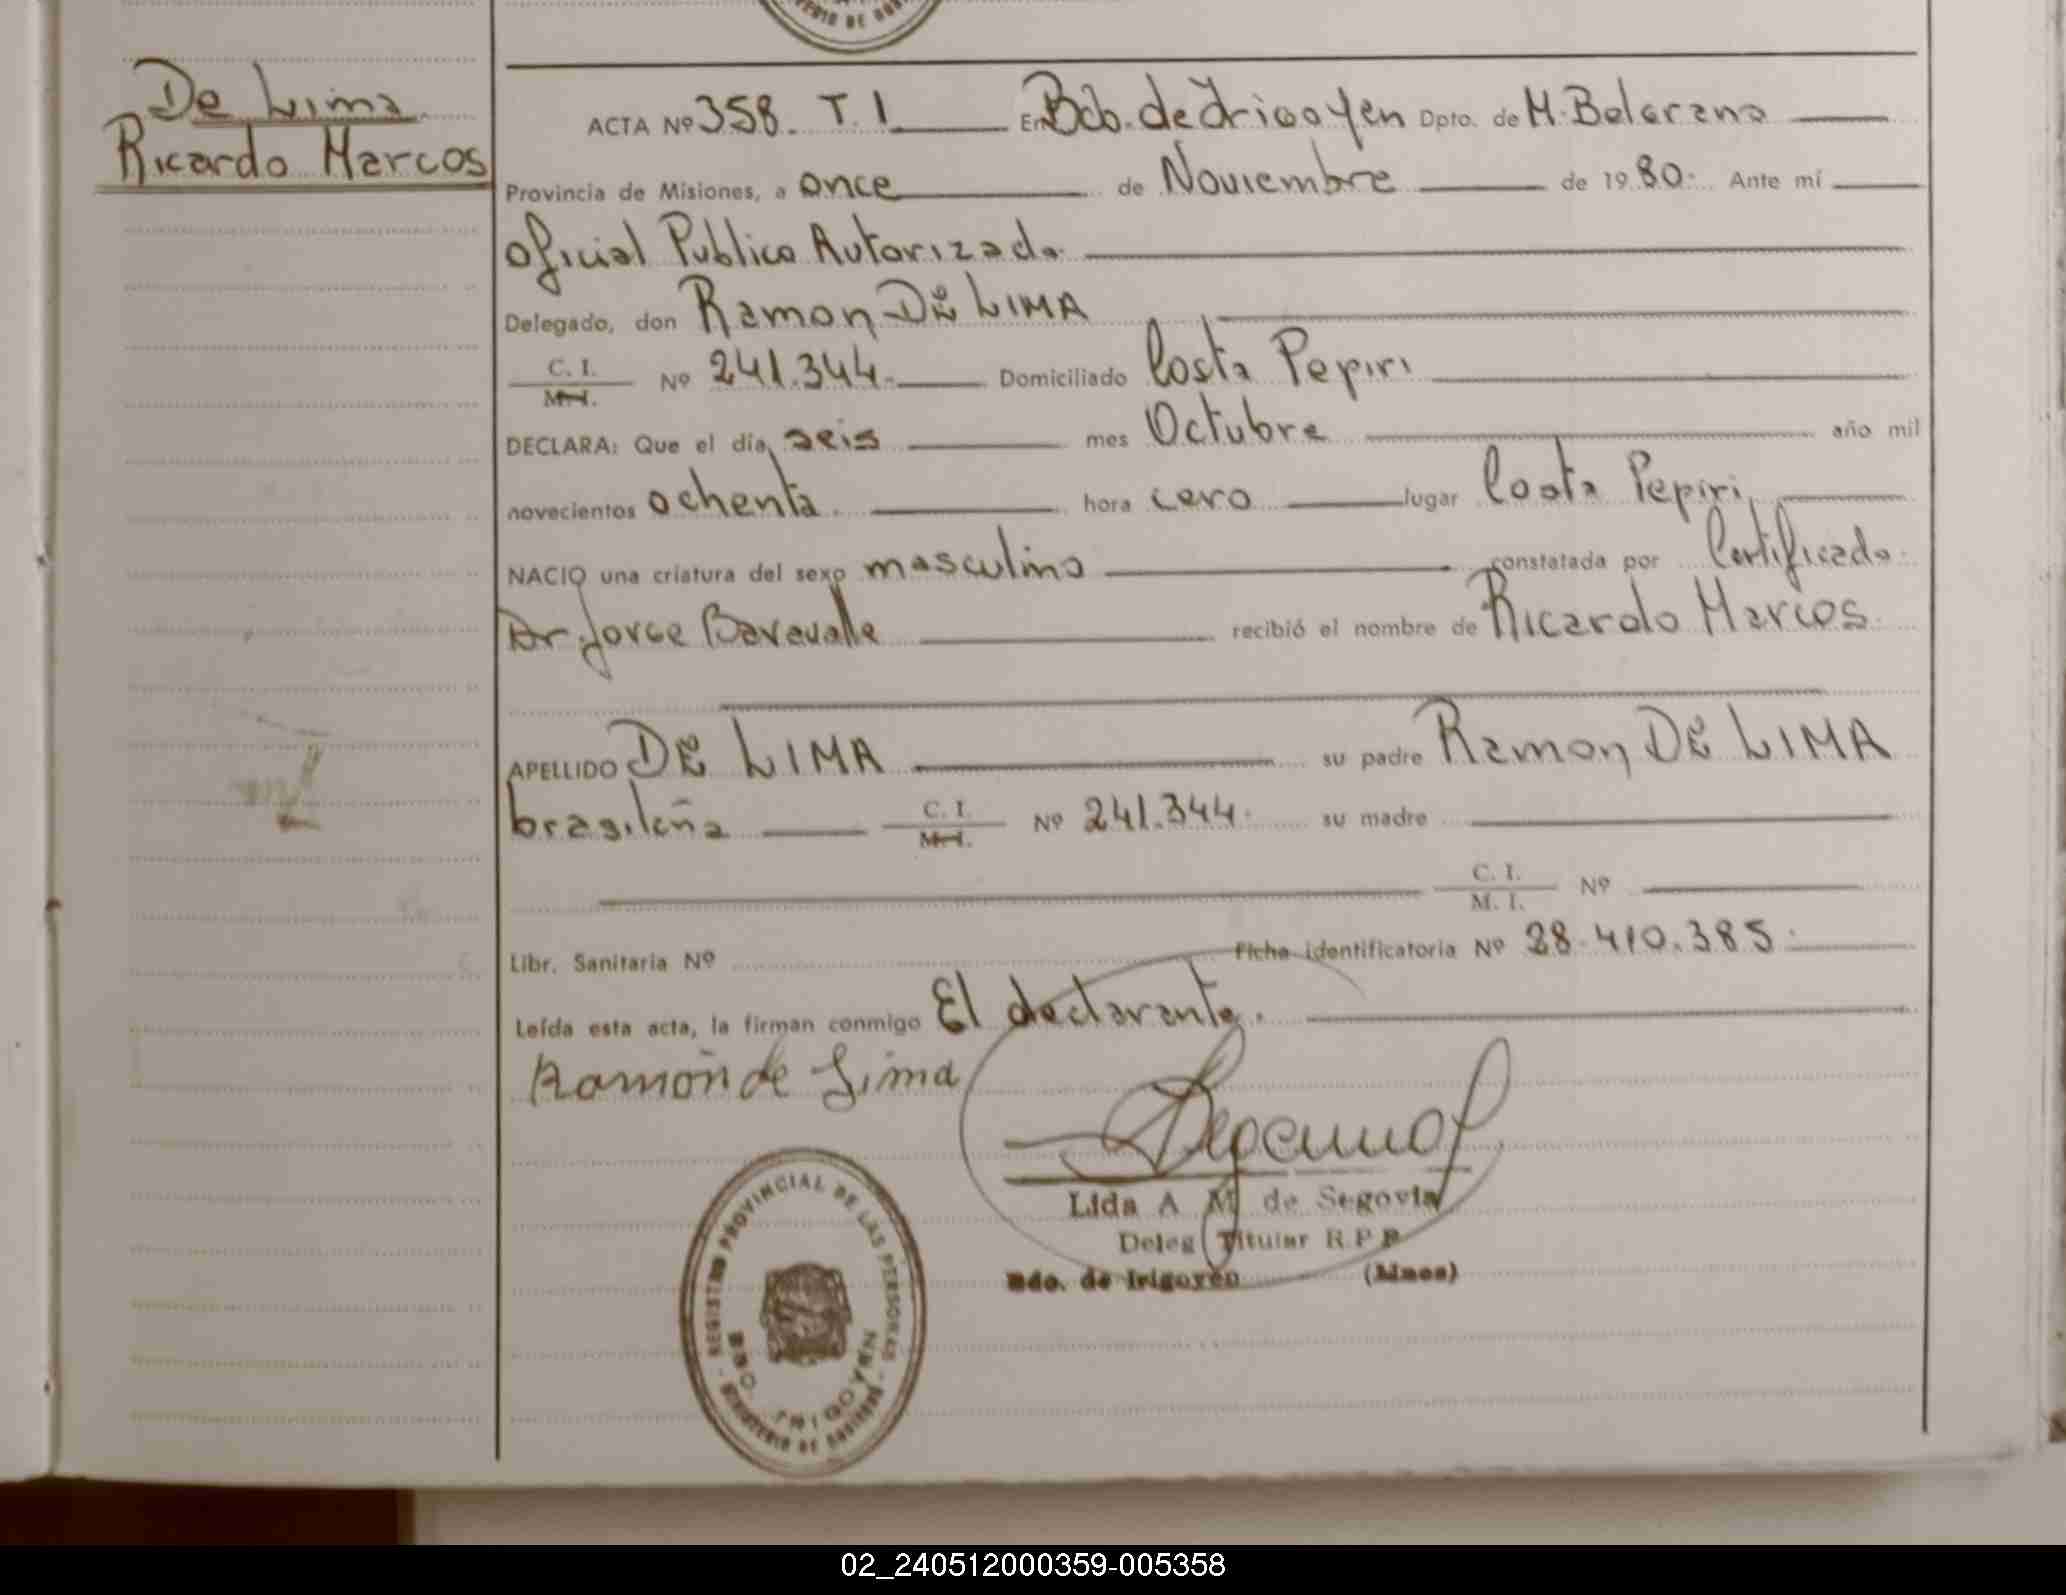 DE GOB
De Lima
Ricardo Marcos
ACTA Nº 358. T. I En Bdo. de Irigoyen Dpto. de M. Belgrano
Provincia de Misiones, a once de Noviembre de 1980. Ante mí
Oficial Publico Autorizado.
Delegado, don Ramon DE LIMA
C. I. M. I. Nº 241.344. Domiciliado Costa Pepiri
DECLARA: Que el día, seis mes Octubre año mil
novecientos ochenta. hora cero lugar Costa Pepiri,
NACIO una criatura del sexo masculino constatada por Certificado.
Dr. Jorge recibió el nombre de Ricardo Marcos.
APELLIDO DE LIMA su padre Ramon DE LIMA
brasileña C. I. M. I. Nº 241.344. su madre
C. I. M. I. Nº
Libr. Sanitaria Nº Ficha identificatoria Nº 28.410.385.
Leída esta acta, la firman conmigo El declarante.
Ramón de Lima
Lida A M de Segovia
Deleg Titular R.P.P
Bdo. de Irigoyen (Mnes)
REGISTRO PROVINCIAL DE LAS PERSONAS
BDO. IRIGOYEN
MINISTERIO DE GOBIERNO
02_240512000359-005358